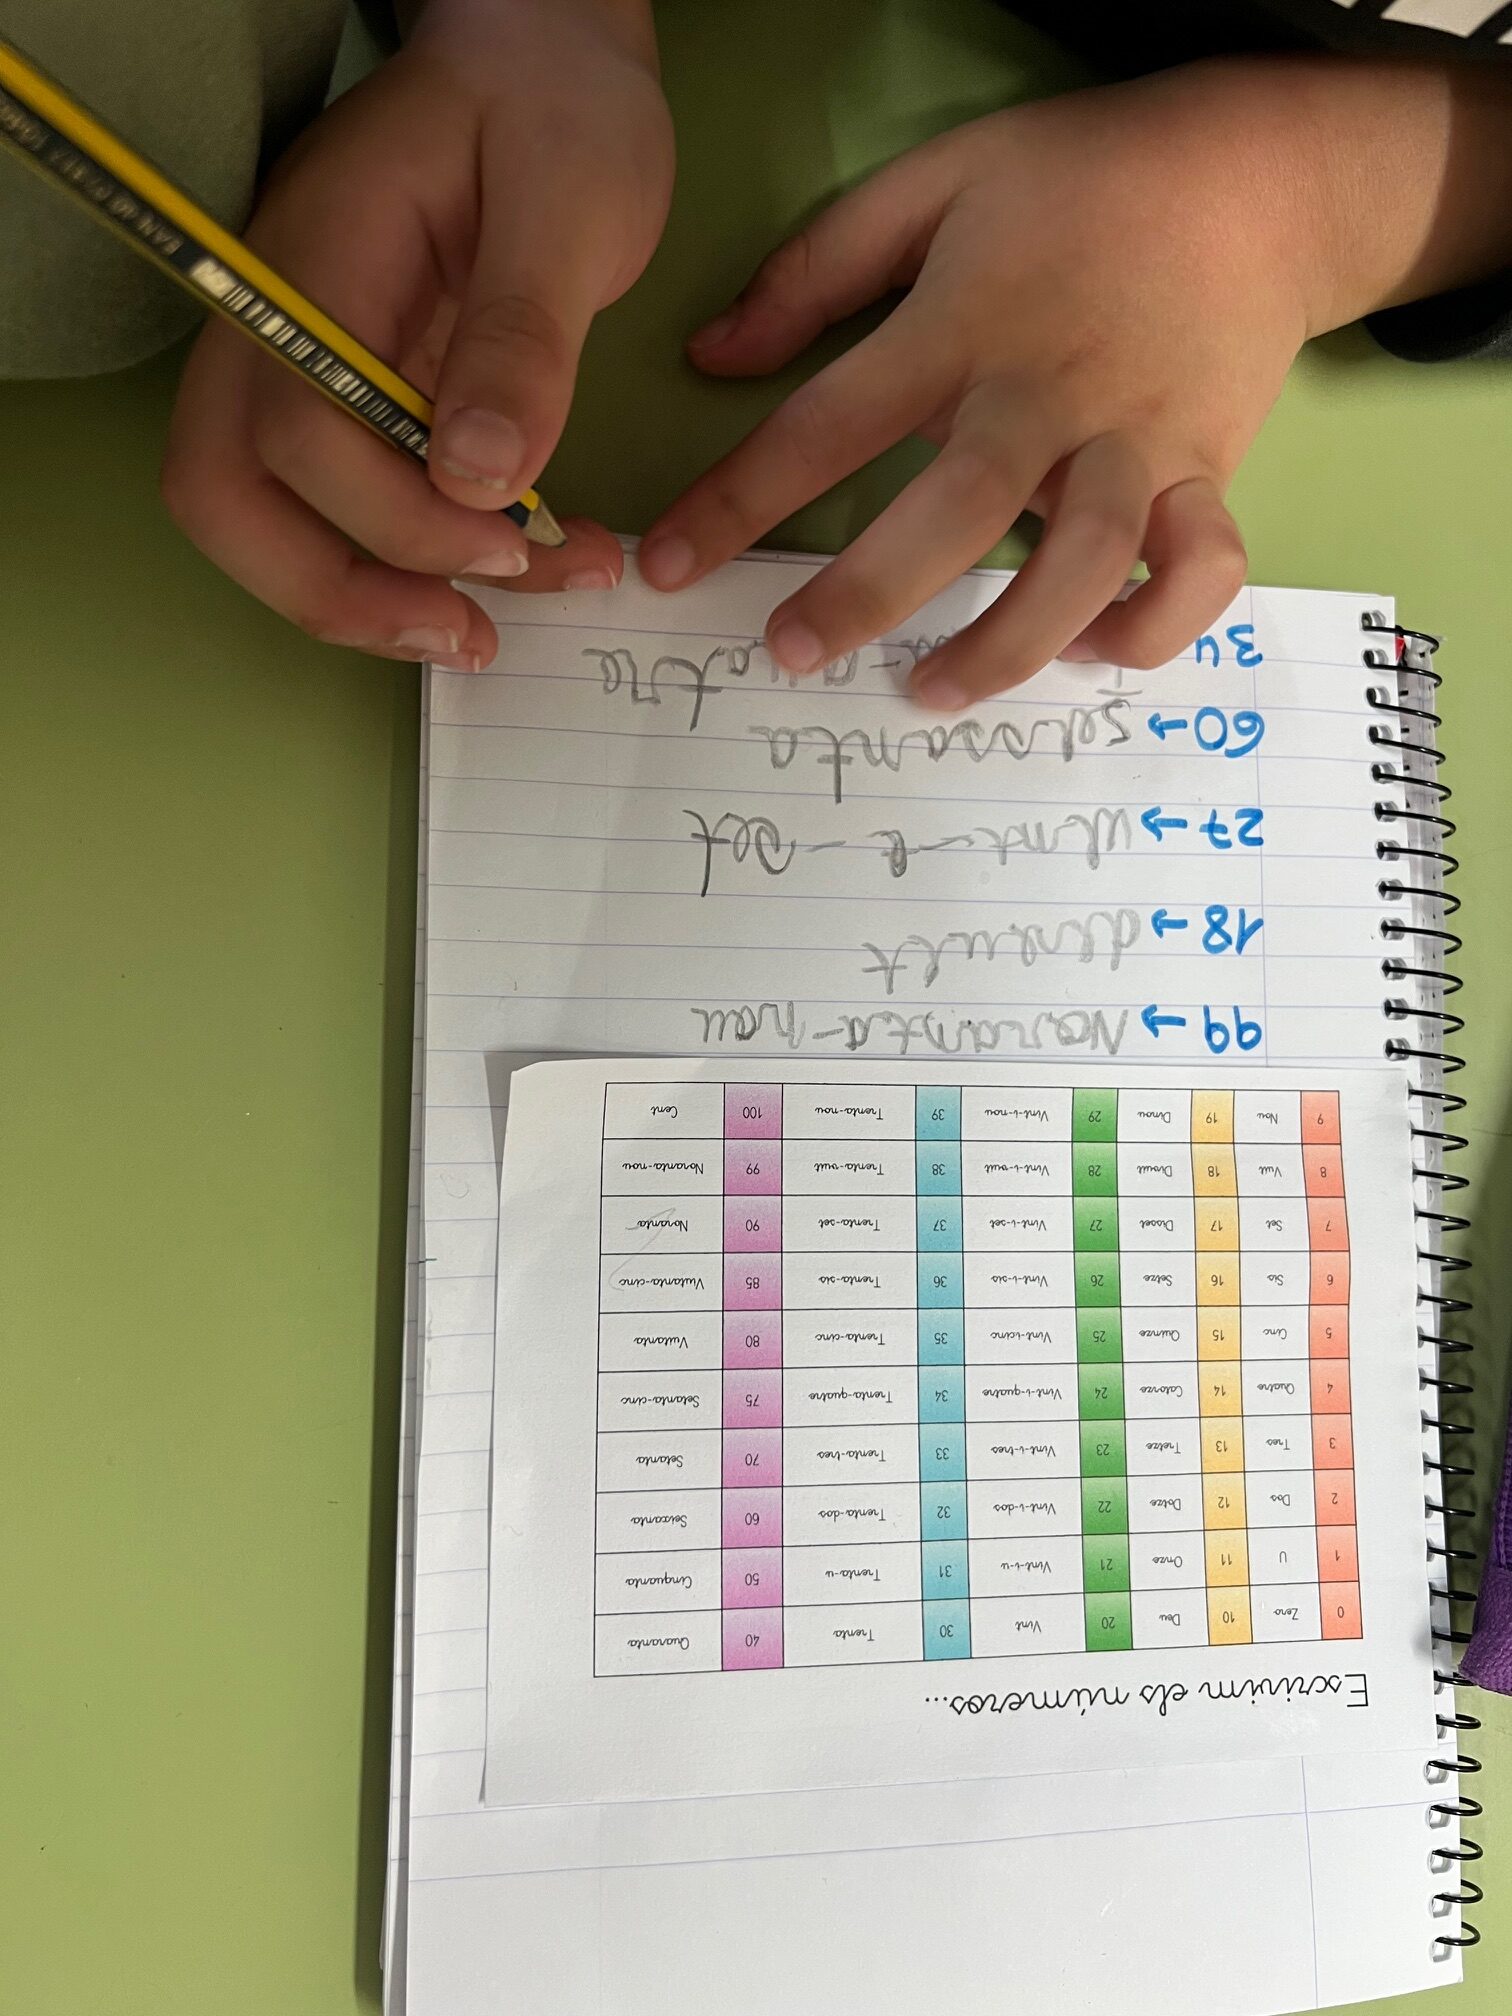 Escrivim els números...
0 Zero 10 Deu 20 Vint 30 Trenta 40 Quaranta
1 U 11 Onze 21 Vint-i-u 31 Trenta-u 50 Cinquanta
2 Dos 12 Dotze 22 Vint-i-dos 32 Trenta-dos 60 Seixanta
3 Tres 13 Tretze 23 Vint-i-tres 33 Trenta-tres 70 Setanta
4 Quatre 14 Catorze 24 Vint-i-quatre 34 Trenta-quatre 75 Setanta-cinc
5 Cinc 15 Quinze 25 Vint-i-cinc 35 Trenta-cinc 80 Vuitanta
6 Sis 16 Setze 26 Vint-i-sis 36 Trenta-sis 85 Vuitanta-cinc
7 Set 17 Disset 27 Vint-i-set 37 Trenta-set 90 Noranta
8 Vuit 18 Divuit 28 Vint-i-vuit 38 Trenta-vuit 99 Noranta-nou
9 Nou 19 Dinou 29 Vint-i-nou 39 Trenta-nou 100 Cent
99 → Noranta-nou
18 →
27 →
60 → seissanta
34